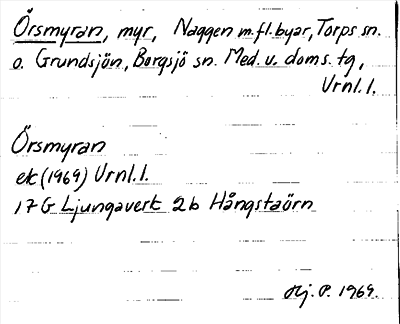 Örsmyran, myr, Naggen m.fl.byar, Torps sn.
o. Grundsjön, Borgsjö sn. Med. v. doms. tg,
Vrnl. l.
Örsmyran
ek (1969) Vrnl. l.
17G Ljungaverk 2b Hångstaörn
Hj. P. 1969.